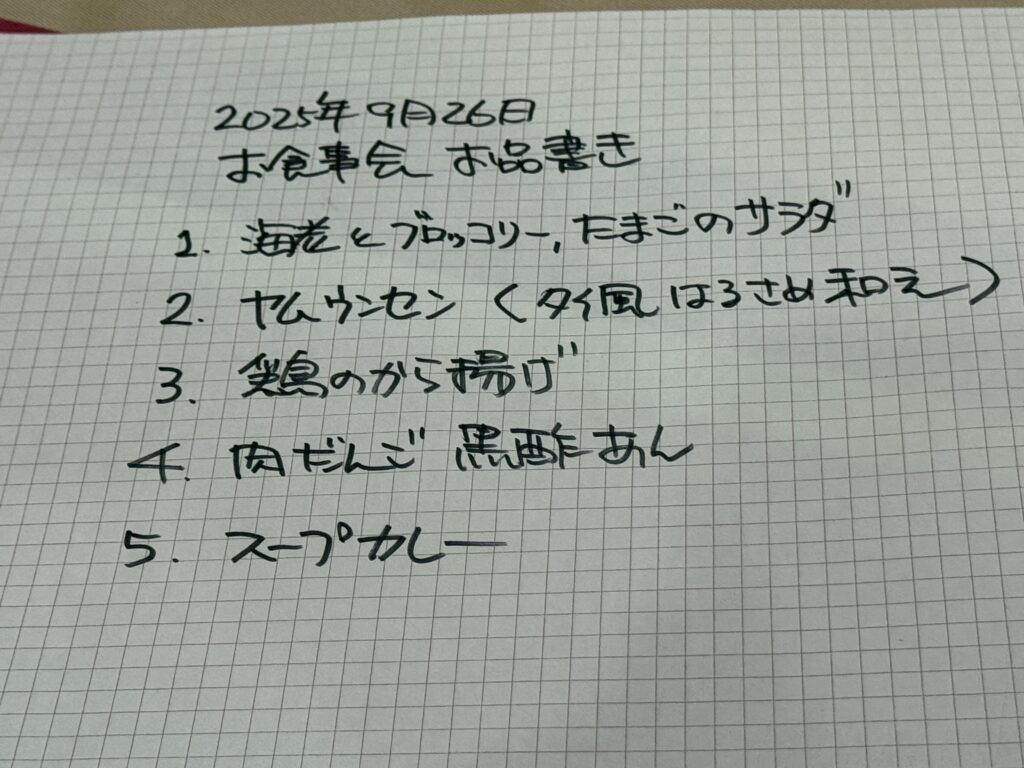 2025年9月26日
お食事会 お品書き
1. 海老とブロッコリー, たまごのサラダ
2. ヤムウンセン (タイ風はるさめ和え)
3. 鶏のから揚げ
4. 肉だんご 黒酢あん
5. スープカレー